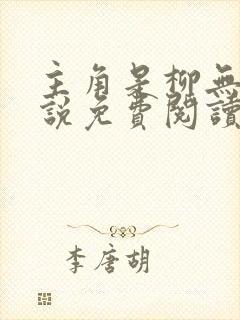 主角是柳無
說免費閱讀
李唐胡